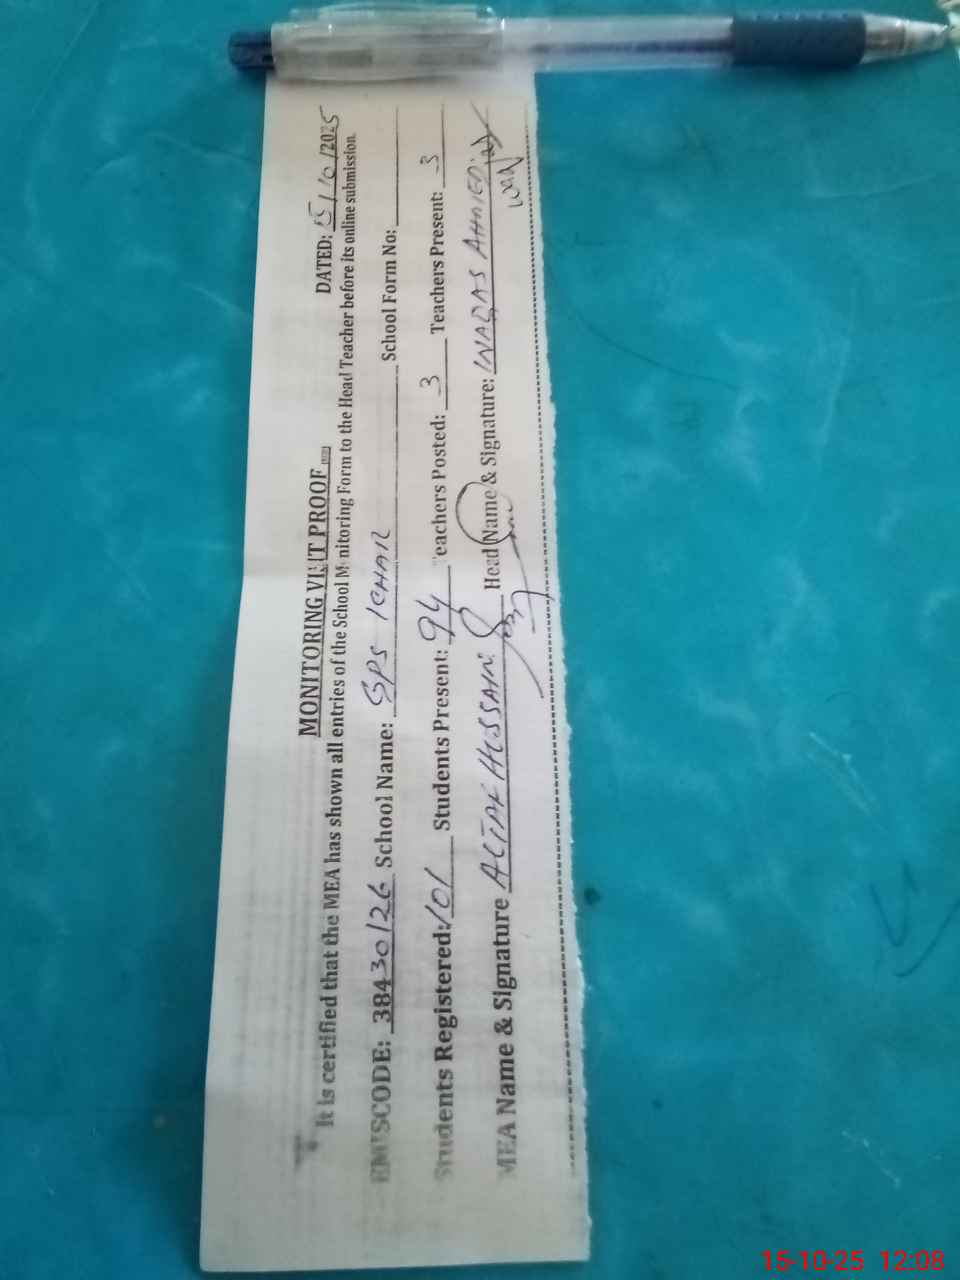 MONITORING VISIT PROOF
DATED: 15/10/2025
It is certified that the MEA has shown all entries of the School Monitoring Form to the Head Teacher before its online submission.
EMISCODE: 38430126 School Name: GPS ICHAR School Form No:
Students Registered: 101 Students Present: 94 Teachers Posted: 3 Teachers Present: 3
MEA Name & Signature ALTAF HUSSAIN Head Name & Signature: WAQAS AHMED
15-10-25 12:08